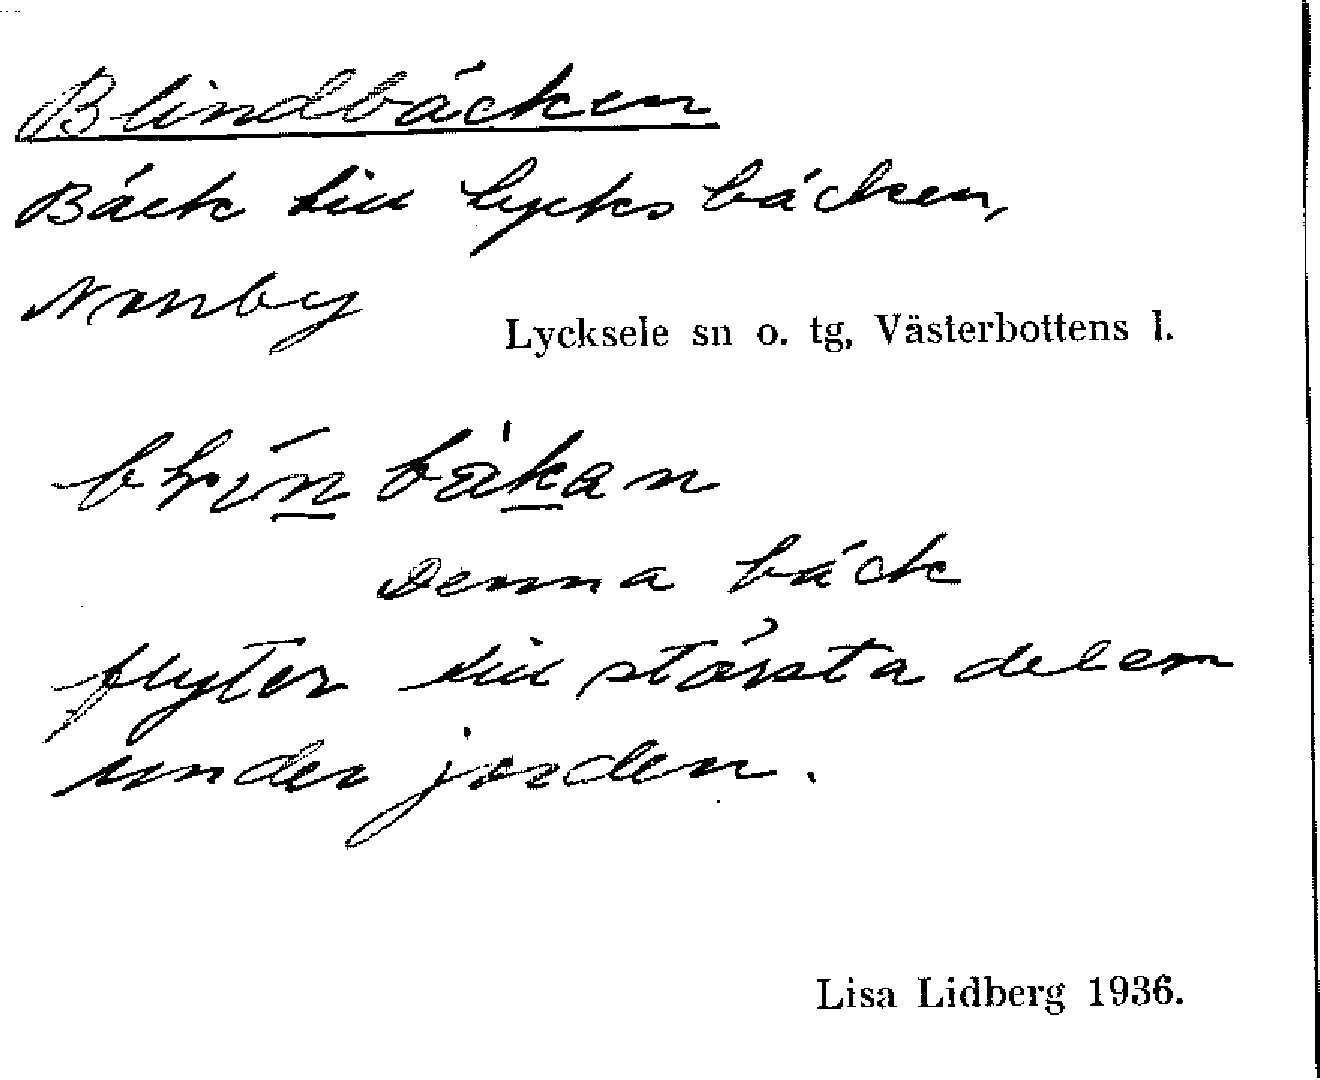 Blindbäcken
Bäck till Lycksbäcken,
Norrby
Lycksele sn o. tg, Västerbottens l.
Denna bäck
flyter till största delen
under jorden.
Lisa Lidberg 1936.